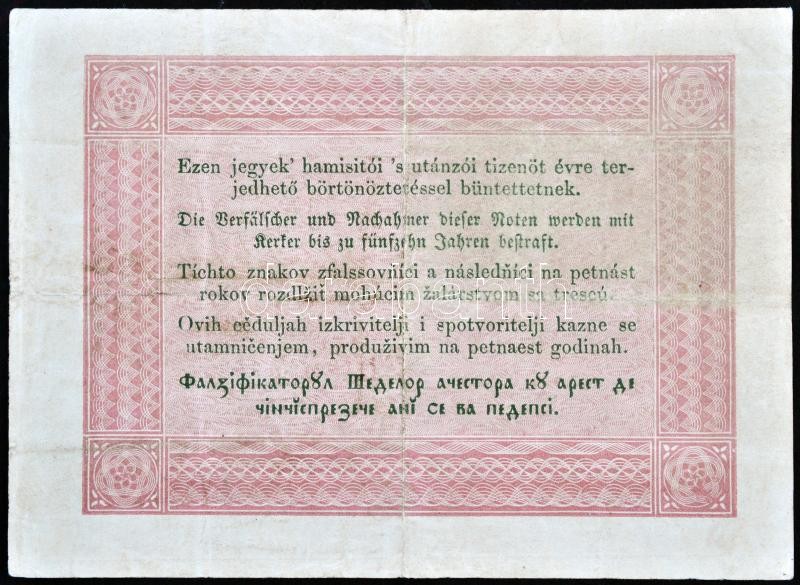 Ezen jegyek' hamisitói 's utánzói tizenöt évre ter-
jedhető börtönöztetéssel büntettetnek.
Die Verfälscher und Nachahmer dieser Noten werden mit
Kerker bis zu fünfzehn Jahren bestraft.
Tíchto znakov zfalssovňíci a následňíci na petnást
rokov rozdlžit mohúcim žalárstvom sa trescú.
Ovih cěduljah izkrivitelji i spotvoritelji kazne se
utamničenjem, produživim na petnaest godinah.
Фалзіфікаторꙋл Шеделор ачестора кꙋ арест де
чінчіспрезече ані се ва педепсі.
darabanth